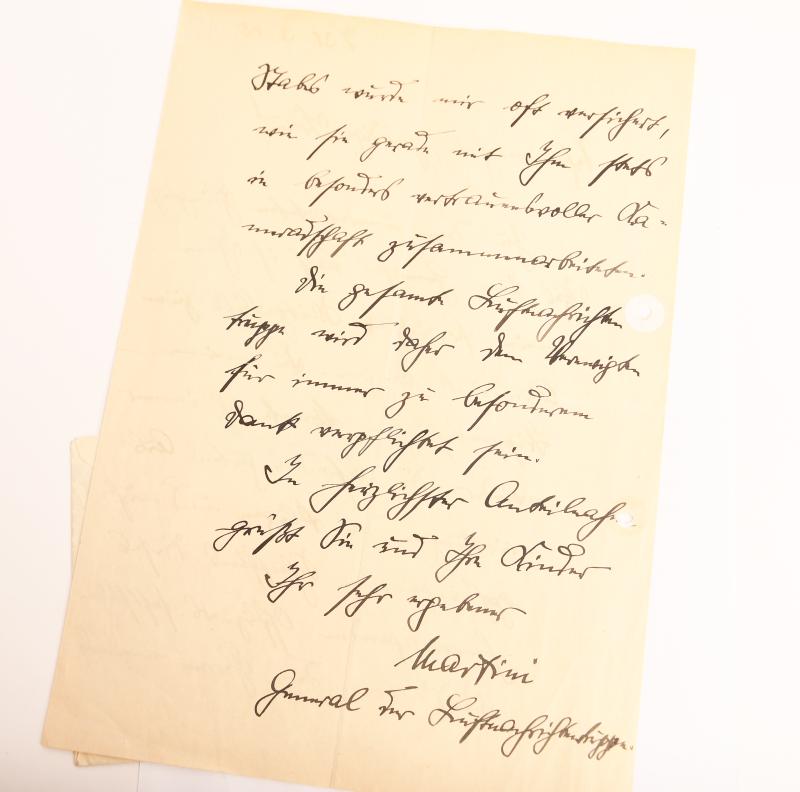 Stabs wurde mir oft versichert,
wie sie gerade mit Ihm stets
in besonders vertrauensvoller Ka-
meradschaft zusammenarbeiteten.
Die gesamte Luftnachrichten
truppe wird daher dem Verewigten
für immer zu besonderem
Dank verpflichtet sein.
In herzlichster Anteilnah
grüßt Sie und Ihre Kinder
Ihr sehr ergebener
Martini
General der Luftnachrichtentruppe.